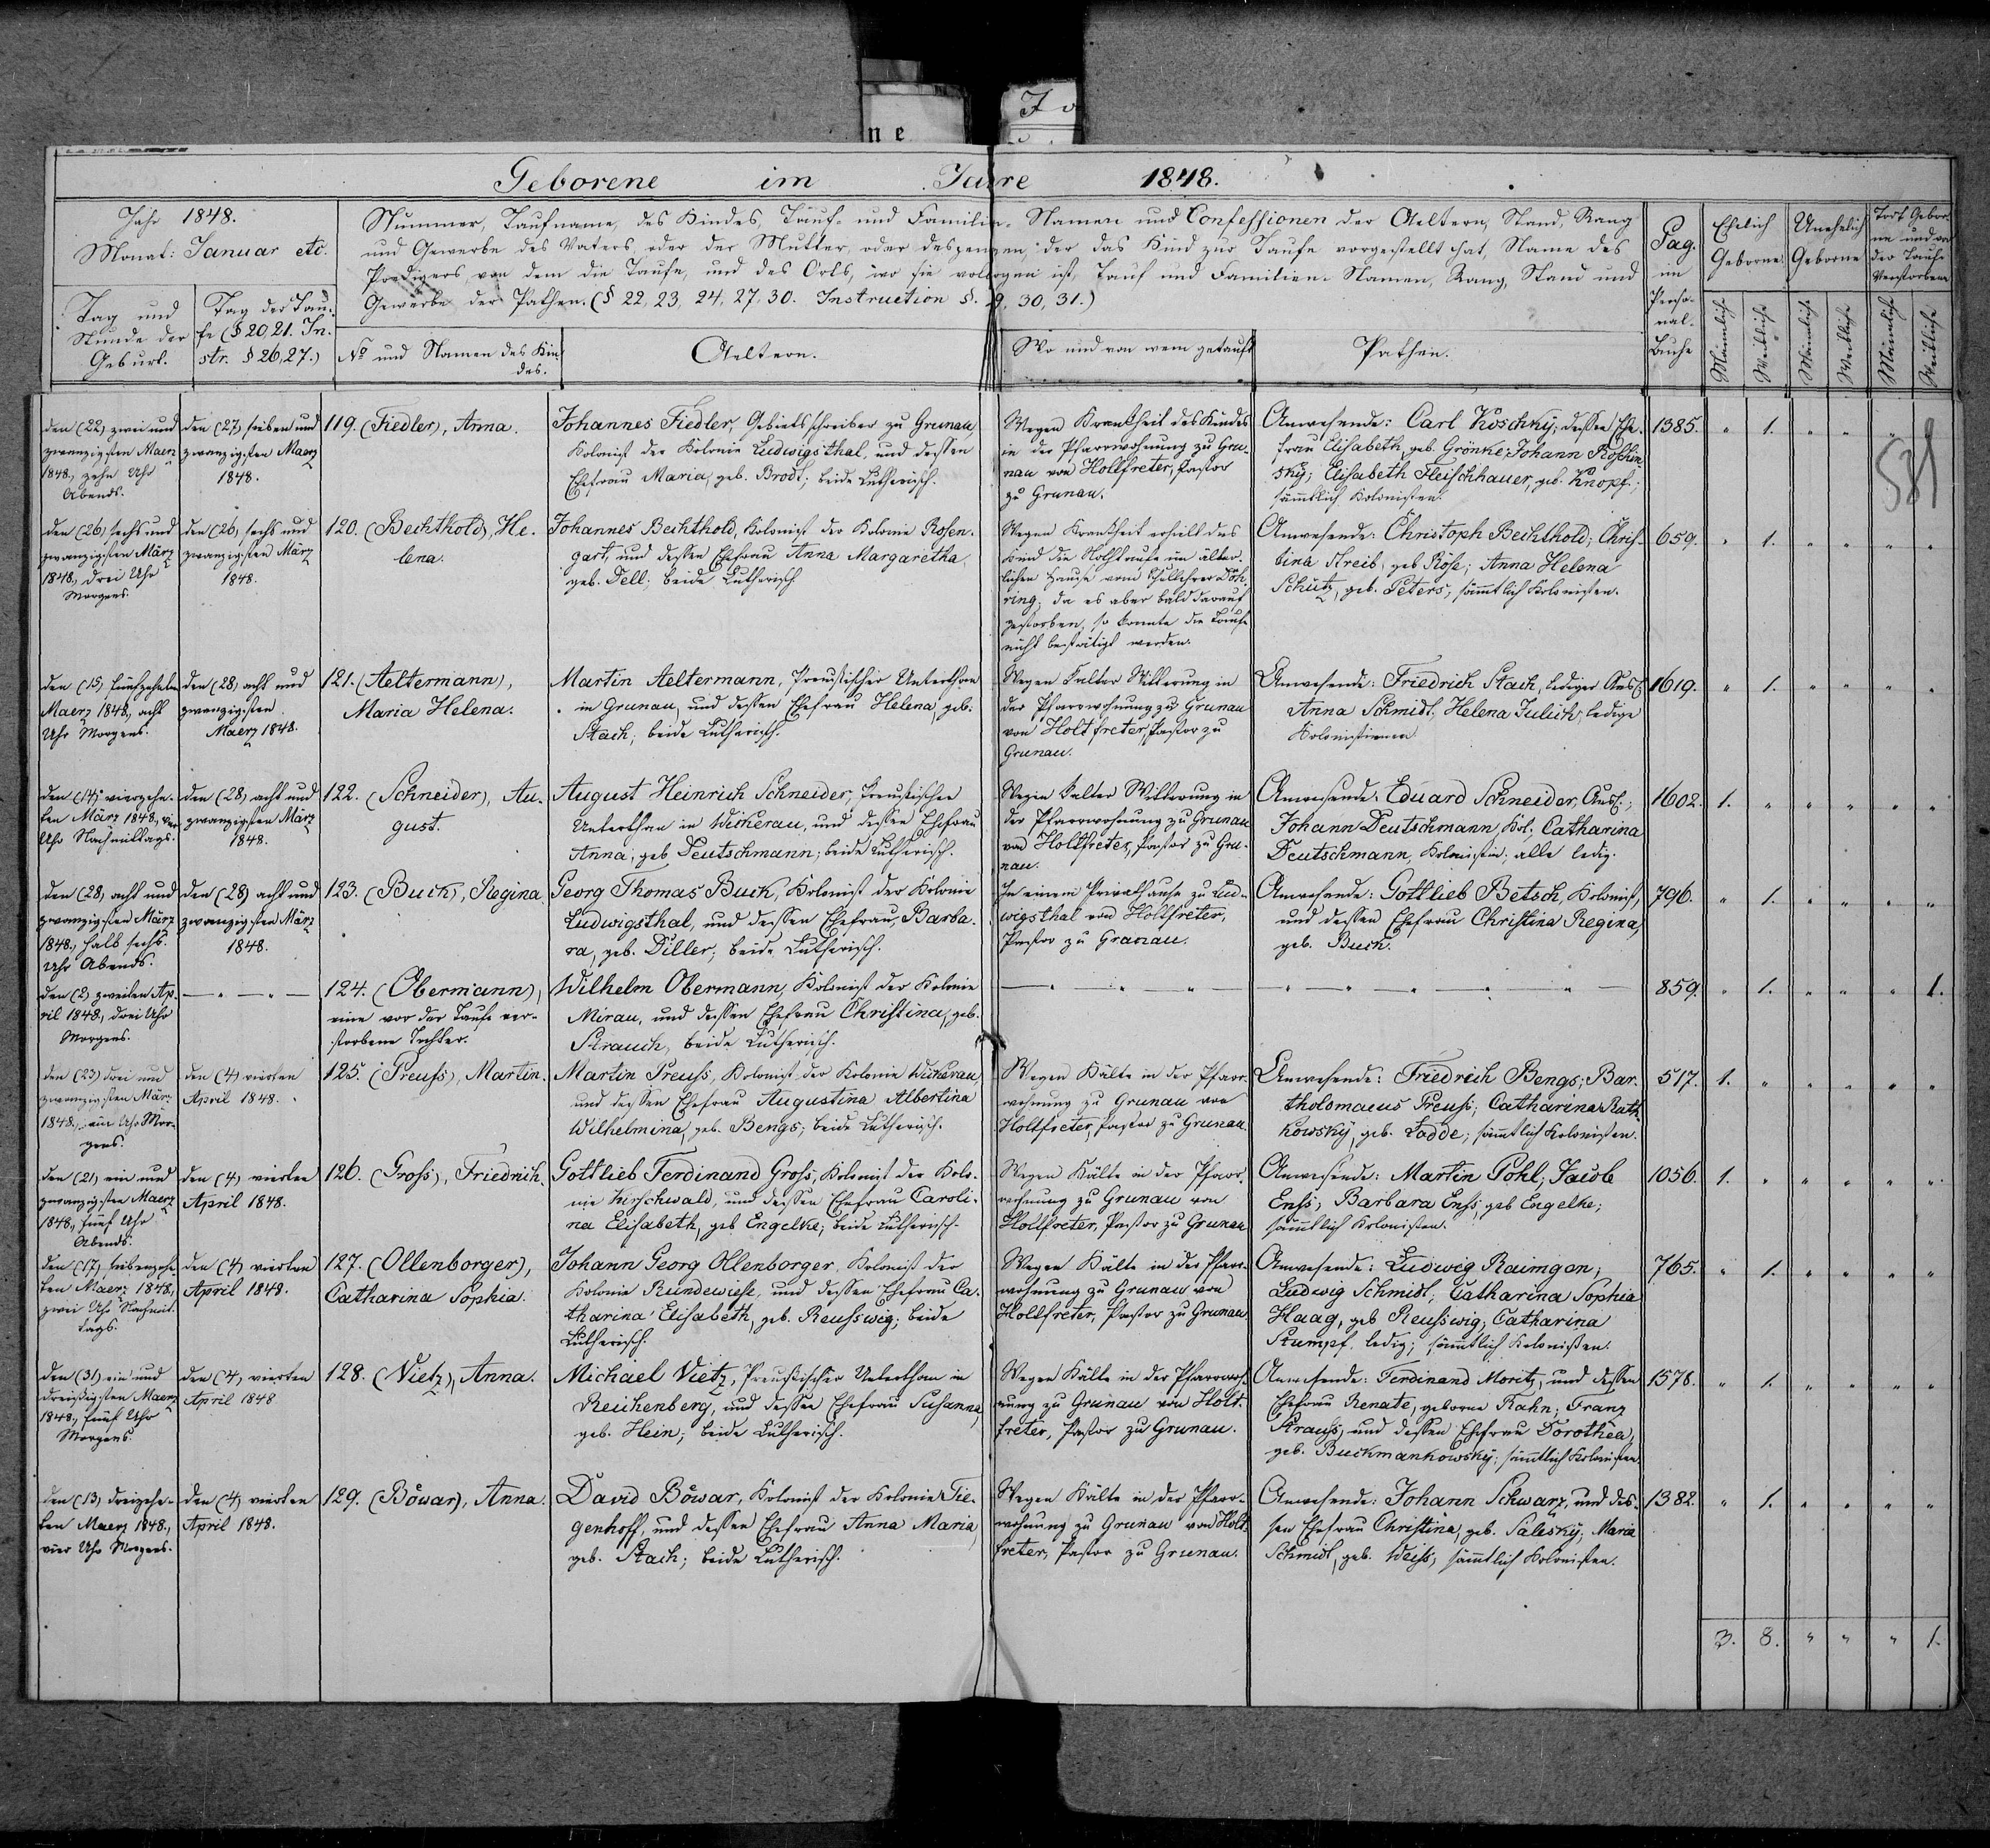 Geborene im Jahre 1848.
Jahr 1848.
Monat: Januar etc.
Tag und
Stunde der
Geburt.
Tag der Tau-
fe (§ 20, 21. In-
str. § 26, 27.)
Nummer, Taufname, des Kindes, Tauf- und Familien-Namen und Confessionen der Aeltern, Stand, Rang
und Gewerbe des Vaters, oder der Mutter, oder desjenigen, der das Kind zur Taufe vorgestellt hat, Name des
Predigers, von dem die Taufe, und des Orts, wo sie vollzogen ist, Tauf und Familien-Namen, Rang, Stand und
Gewerbe der Pathen. (§ 22, 23, 24, 27, 30. Instruction §. 29, 30, 31.)
No und Namen des Kin-
des.
Aeltern.
Wo und von wem getauft
Pathen.
Pag.
im
Perso-
nal-
Buche
Ehelich
Geborne.
Unehelich
Geborne
Todt Gebor-
ne und vor
der Taufe
Verstorbene
Männlich
Weibliche
Männlich
Weibliche
Männlich
Weibliche
581
den (22) zwei und
zwanzigsten Maerz
1848., zehn Uhr
Abends.
den (27) sieben und
zwanzigsten Maerz
1848.
119. (Fiedler), Anna.
Johannes Fiedler, Gebietsschreiber zu Grunau,
Kolonist der Kolonie Ludwigsthal, und dessen
Ehefrau Maria, geb. Brodt; beide Lutherisch.
Wegen Krankheit des Kindes
in der Pfarrwohnung zu Gru-
nau von Holtfreter, Pastor
zu Grunau.
Anwesende: Carl Koschky; dessen Ehe-
frau Elisabeth, geb. Grönke; Johann Roschin-
sky; Elisabeth Fleischhauer, geb. Knopf;
sämmtlich Kolonisten.
1385. " 1. " " " "
den (26) sechs und
zwanzigsten März
1848., drei Uhr
Morgens.
den (26) sechs und
zwanzigsten März
1848.
120. (Bechthold), He-
lena.
Johannes Bechthold, Kolonist der Kolonie Rosen-
gart, und dessen Ehefrau Anna Margaretha,
geb. Dell; beide Lutherisch
Wegen Krankheit erhielt das
Kind die Nothtaufe im älter-
lichen Hause vom Schullehrer Döh-
ring; da es aber bald darauf
gestorben, so konnte die Taufe
nicht bestätigt werden.
Anwesende: Christoph Bechthold; Chris-
tina Streib, geb. Röse; Anna Helena
Schütz, geb. Peters; sämmtlich Kolonisten.
659. " 1. " " " "
den (15) fünfzehnten
Maerz 1848., acht
Uhr Morgens.
den (28) acht und
zwanzigsten
Maerz 1848.
121. (Aeltermann),
Maria Helena.
Martin Aeltermann, Preussischer Unterthan
in Grunau, und dessen Ehefrau Helena, geb.
Stach; beide Lutherisch.
Wegen kalter Witterung in
der Pfarrwohnung zu Grunau
von Holtfreter, Pastor zu
Grunau.
Anwesende: Friedrich Stach, lediger Ausl.;
Anna Schmidt; Helena Julich, ledige
Kolonistinnen
1619. " 1. " " " "
den (14) vierzehn-
ten März 1848., vier
Uhr Nachmittags.
den (28) acht und
zwanzigsten März
1848.
122. (Schneider), Au-
gust.
August Heinrich Schneider, Preussischer
Unterthan in Wickerau, und dessen Ehefrau
Anna, geb. Deutschmann; beide Lutherisch.
Wegen kalter Witterung in
der Pfarrwohnung zu Grunau
von Holtfreter, Pastor zu Gru-
nau.
Anwesende: Eduard Schneider, Ausl.;
Johann Deutschmann, Kol.; Catharina
Deutschmann, Kolonistin; alle ledig.
1602. 1. " " " " "
den (28) acht und
zwanzigsten März
1848., halb sechs
Uhr Abends.
den (28) acht und
zwanzigsten März
1848.
123. (Buck), Regina
Georg Thomas Buck, Kolonist der Kolonie
Ludwigsthal, und dessen Ehefrau, Barba-
ra, geb. Diller; beide Lutherisch.
In einem Privathause zu Lud-
wigsthal von Holtfreter,
Pastor zu Grunau.
Anwesende: Gottlieb Betsch, Kolonist,
und dessen Ehefrau Christina Regina,
geb. Buck.
796. " 1. " " " "
den (2) zweiten Ap-
ril 1848., drei Uhr
Morgens.
— " — " —
124. (Obermann),
eine vor der Taufe ver-
storbene Tochter.
Wilhelm Obermann, Kolonist der Kolonie
Mirau, und dessen Ehefrau Christina, geb.
Strauch, beide Lutherisch.
859. " 1. " " " 1.
den (23) drei und
zwanzigsten März
1848., ein Uhr Mor-
gens.
den (4) vierten
April 1848.
125. (Preuss), Martin.
Martin Preuss, Kolonist der Kolonie Wickerau,
und dessen Ehefrau Augustina Albertina
Wilhelmina, geb. Bengs; beide Lutherisch.
Wegen Kälte in der Pfarr-
wohnung zu Grunau von
Holtfreter, Pastor zu Grunau.
Anwesende: Friedrich Bengs; Bar-
tholomaeus Preuss; Catharina Rath-
kowsky, geb. Ladde; sämmtlich Kolonisten.
517. 1. " " " " "
den (21) ein und
zwanzigsten Maerz
1848., fünf Uhr
Abends.
den (4) vierten
April 1848.
126. (Gross), Friedrich.
Gottlieb Ferdinand Gross, Kolonist der Kolo-
nie Kirschwald, und dessen Ehefrau Caroli-
na Elisabeth, geb. Engelke; beide Lutherisch.
Wegen Kälte in der Pfarr-
wohnung zu Grunau von
Holtfreter, Pastor zu Grunau
Anwesende: Martin Pohl; Jacob
Enss; Barbara Enss, geb. Engelke;
sämmtlich Kolonisten.
1056. 1. " " " " "
den (17) siebenzehn-
ten Maerz 1848.,
zwei Uhr Nachmit-
tags.
den (4) vierten
April 1848.
127. (Ollenborger),
Catharina Sophia.
Johann Georg Ollenborger, Kolonist der
Kolonie Rundewiese, und dessen Ehefrau Ca-
tharina Elisabeth, geb. Reusswig; beide
Lutherisch.
Wegen Kälte in der Pfarr-
wohnung zu Grunau von
Holtfreter, Pastor zu Grunau
Anwesende: Ludwig Raimgon;
Ludwig Schmidt; Catharina Sophia
Haag, geb. Reusswig; Catharina
Stumpf, ledig; sämmtlich Kolonisten.
765. " 1. " " " "
den (31) ein und
dreissigsten Maerz
1848., fünf Uhr
Morgens.
den (4) vierten
April 1848
128. (Vietz), Anna.
Michael Vietz, Preussischer Unterthan in
Reichenberg, und dessen Ehefrau Susanna,
geb. Hein; beide Lutherisch.
Wegen Kälte in der Pfarrwoh-
nung zu Grunau von Holt-
freter, Pastor zu Grunau.
Anwesende: Ferdinand Moritz, und dessen
Ehefrau Renate, geborne Rahn; Franz
Strauss, und dessen Ehefrau Dorothea,
geb. Buckmankowsky; sämmtlich Kolonisten.
1578. " 1. " " " "
den (13) dreizehn-
ten Maerz 1848.,
vier Uhr Morgens.
den (4) vierten
April 1848.
129. (Böwar), Anna.
David Böwar, Kolonist der Kolonie Tie-
genhoff, und dessen Ehefrau Anna Maria,
geb. Stach; beide Lutherisch.
Wegen Kälte in der Pfarr-
wohnung zu Grunau von Holt-
freter, Pastor zu Grunau.
Anwesende: Johann Schwarz, und des-
sen Ehefrau Christina, geb. Salesky; Maria
Schmidt, geb. Weiss; sämmtlich Kolonisten.
1382. " 1. " " " "
3. 8. " " " 1.